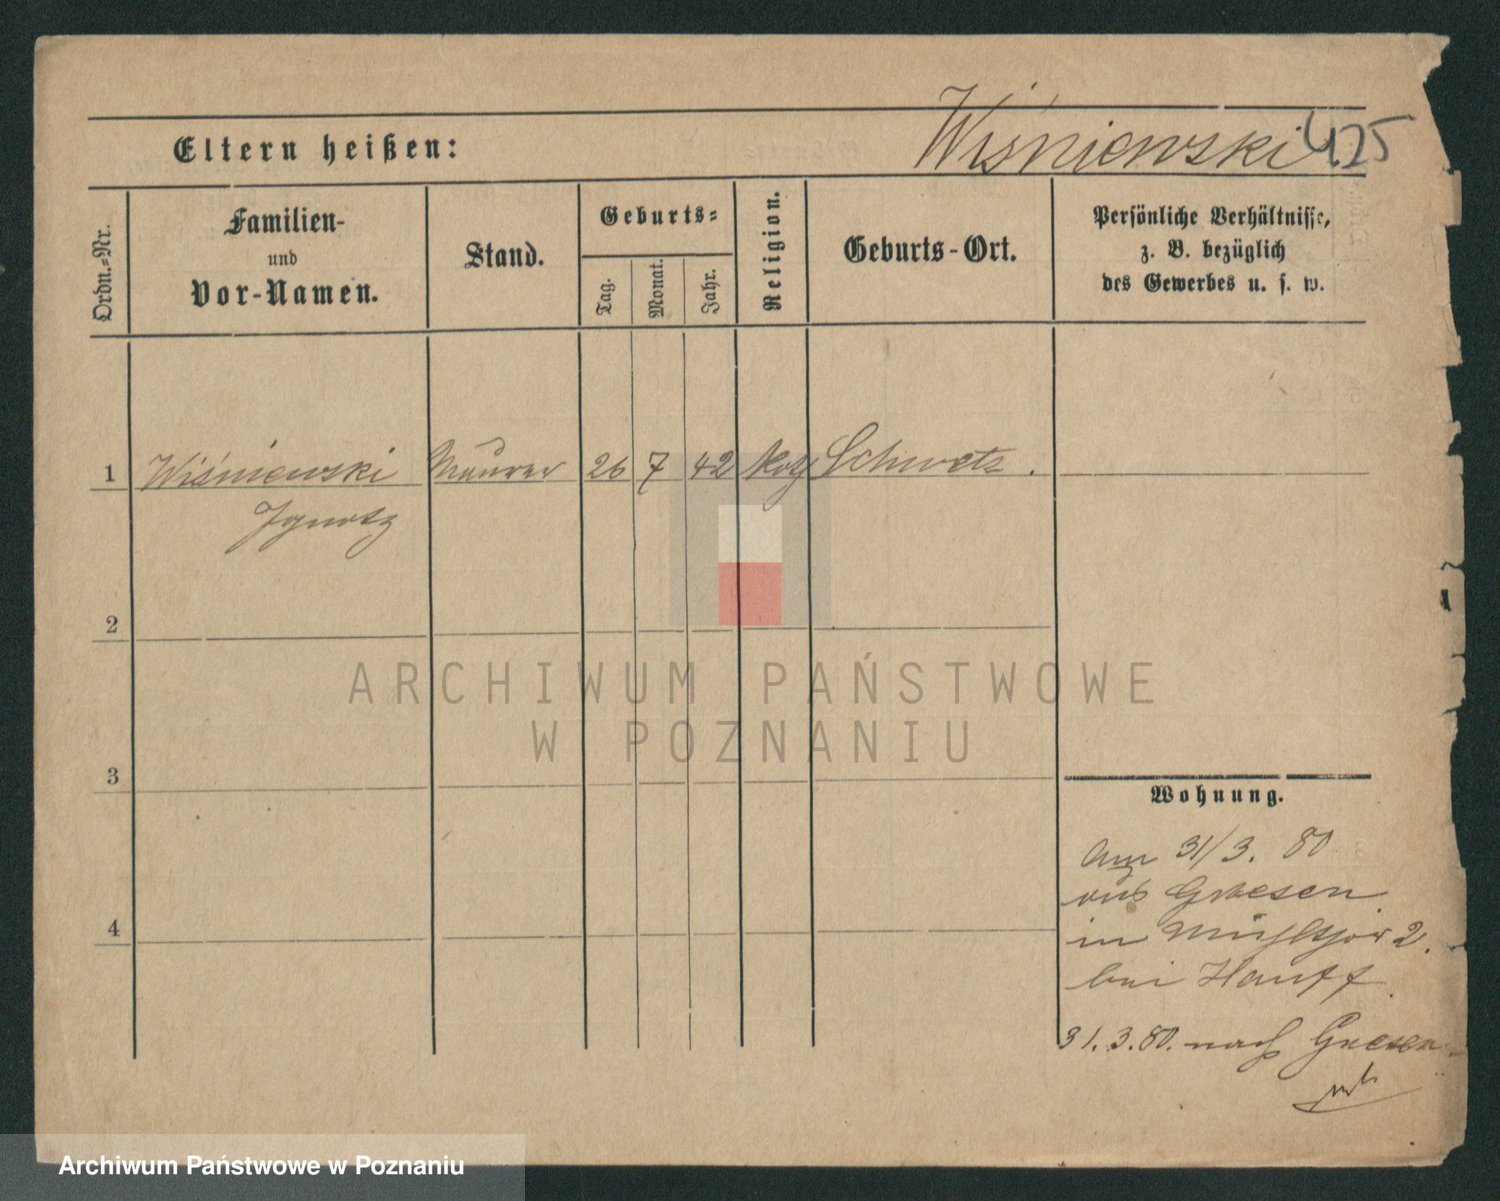 Wiśniewski. 425
Eltern heißen:
Ordn.-Nr.
Familien-
und
Vor-Namen.
Stand.
Geburts-
Tag.
Monat.
Jahr.
Religion.
Geburts-Ort.
Persönliche Verhältnisse,
z. B. bezüglich
des Gewerbes u. s. w.
1 Wiśniewski Maurer 26 7 42 Kath Schwetz.
Ignatz
2
3
4
Wohnung.
Am 31/3. 80
aus Gnesen
in Mühlthor 2.
bei Hauff.
31.3.80. nach Gnesen
ARCHIWUM PAŃSTWOWE
W POZNANIU
Archiwum Państwowe w Poznaniu